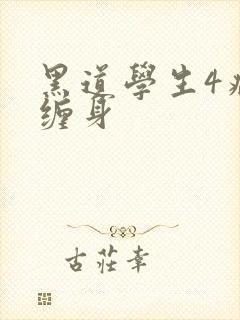 黑道學生4
缠身
古莊幸